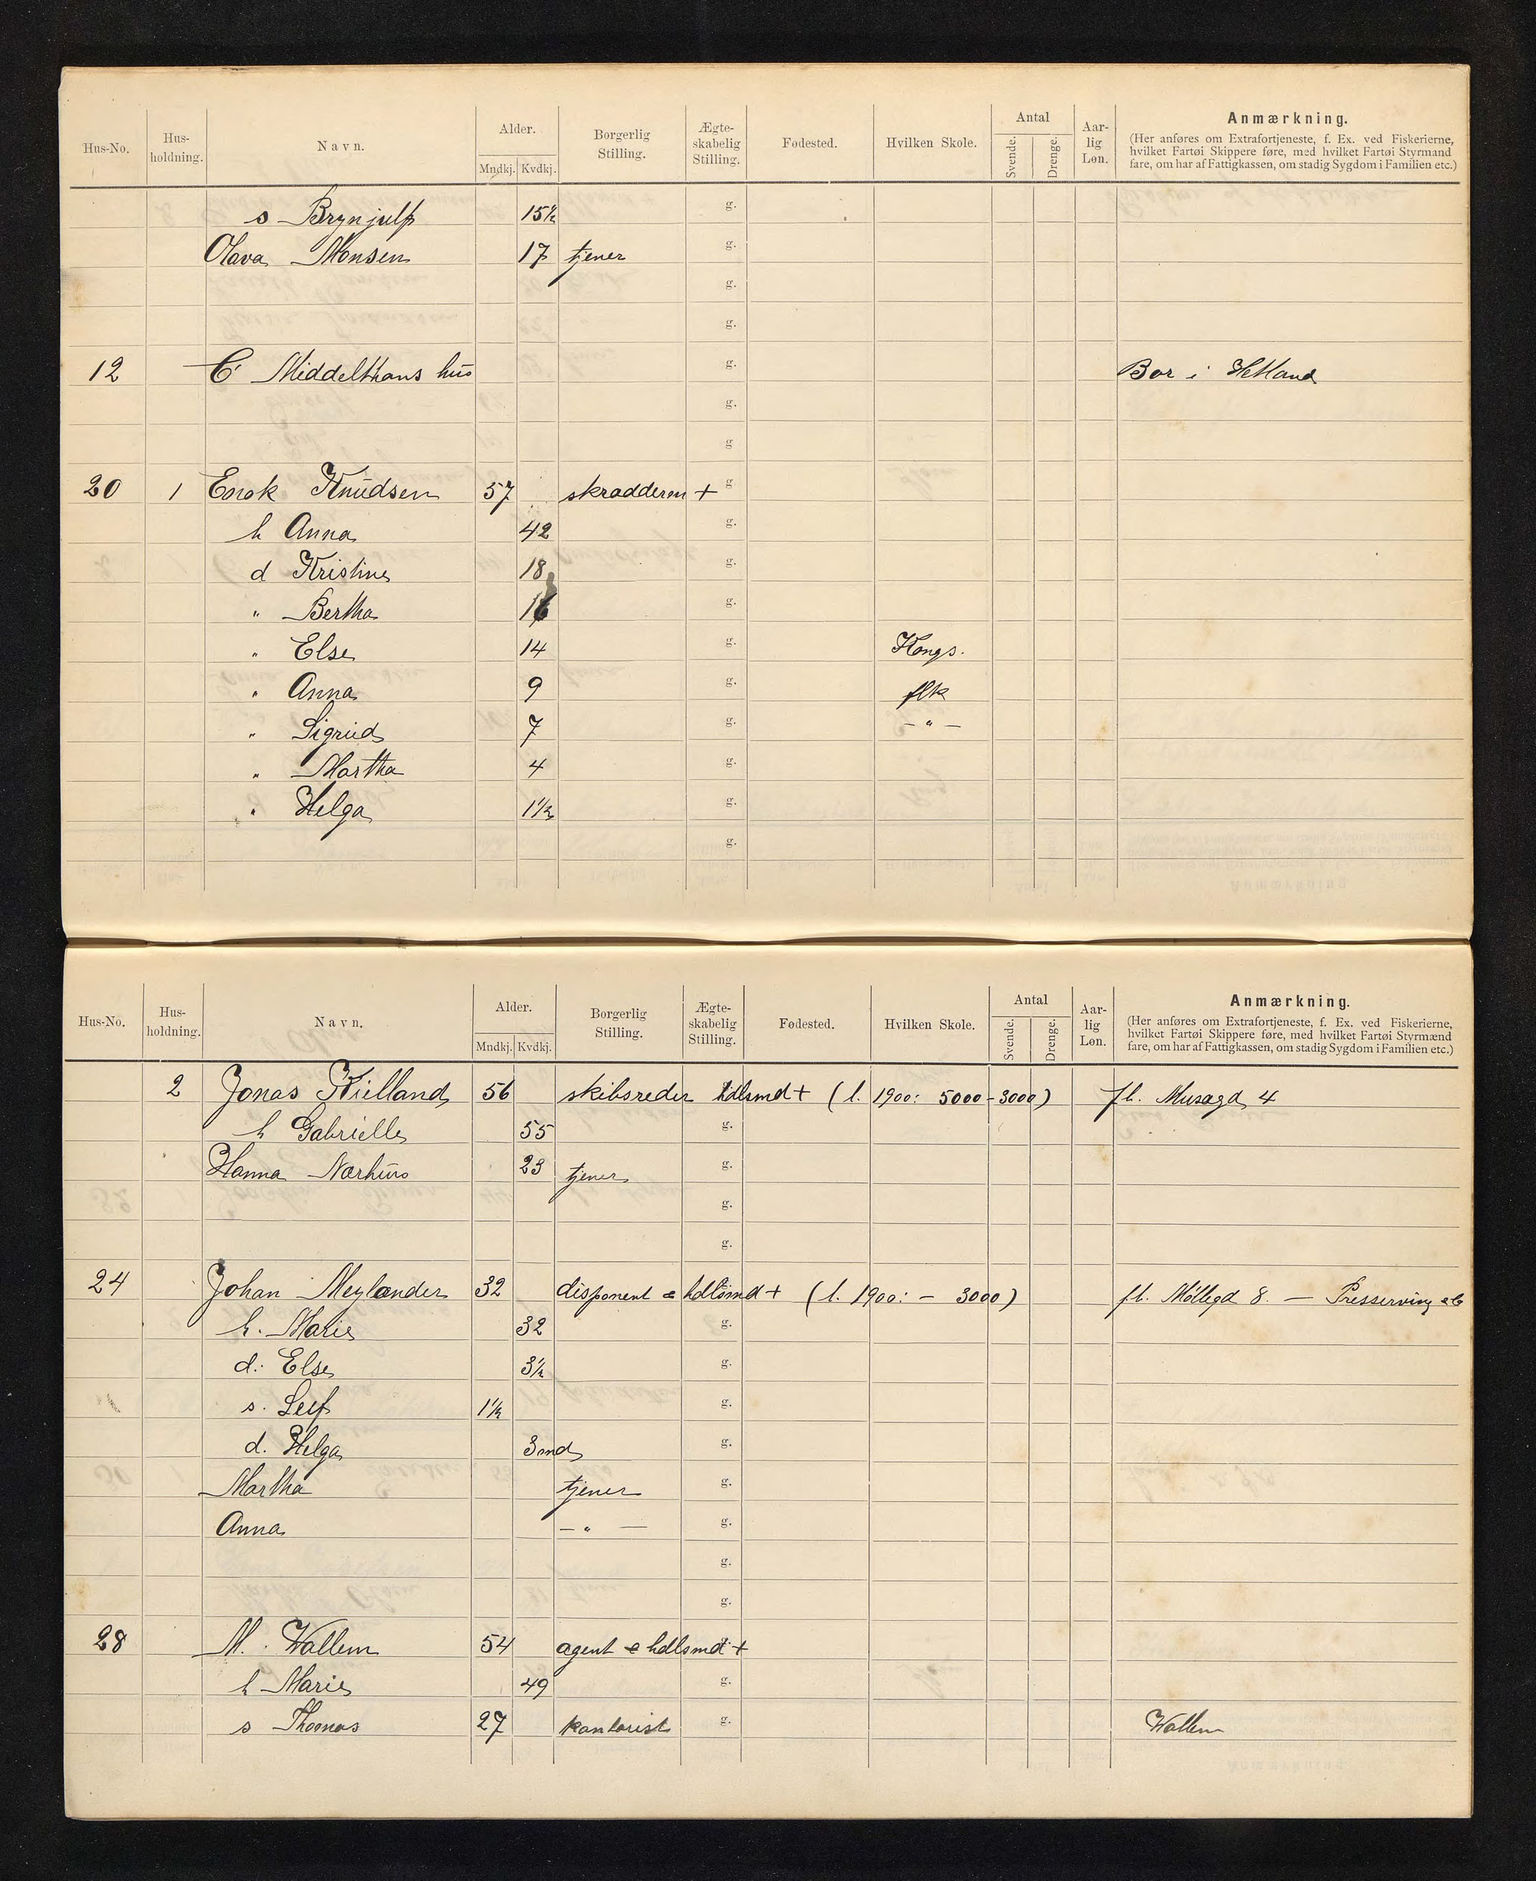 Hus-No. Hus-holdning. Navn. Alder. Mndkj. Kvdkj. Borgerlig Stilling. Ægte-skabelig Stilling. Fødested. Hvilken Skole. Antal Svende. Drenge. Aar-lig Løn. Anmærkning.
(Her anføres om Extrafortjeneste, f. Ex. ved Fiskerierne,
hvilket Fartøi Skippere føre, med hvilket Fartøi Styrmand
fare, om har af Fattigkassen, om stadig Sygdom i Familien etc.)
s Brynjulf 15½ g.
Olava Monsen 17 tjener g.
g.
g.
12 C Middelthons hus g. Bor i Hetland
g.
g.
20 1 Enok Knudsen 57 skrædderm + g.
h Anna 42 g.
d Kristine 18 g.
" Bertha 16 g.
" Else 14 g. Kongs.
" Anna 9 g. flk
" Sigrud 7 g. – " –
" Martha 4 g.
" Helga 1½ g.
g.
Hus-No. Hus-holdning. Navn. Alder. Mndkj. Kvdkj. Borgerlig Stilling. Ægte-skabelig Stilling. Fødested. Hvilken Skole. Antal Svende. Drenge. Aar-lig Løn. Anmærkning.
(Her anføres om Extrafortjeneste, f. Ex. ved Fiskerierne,
hvilket Fartøi Skippere føre, med hvilket Fartøi Styrmænd
fare, om har af Fattigkassen, om stadig Sygdom i Familien etc.)
2 Jonas Kielland 56 skibsreder hdlsmd + (l. 1900: 5000 – 3000) fl. Musægd 4
h Gabrielle 55 g.
Hanna Nærhus 23 tjener g.
g.
g.
24 Johan Meylænder 32 disponent & hdlsmd + (l. 1900: – 3000) fl. Møllegd 8. –
h. Marie 32 g.
d. Else 3½ g.
s. Leif 1½ g.
d. Helga 3 md g.
Martha tjener g.
Anna – " – g.
g.
g.
28 M. Wallem 54 agent & hdlsmd +
h Marie 49 g.
s Thomas 27 kontorist g. Wallem